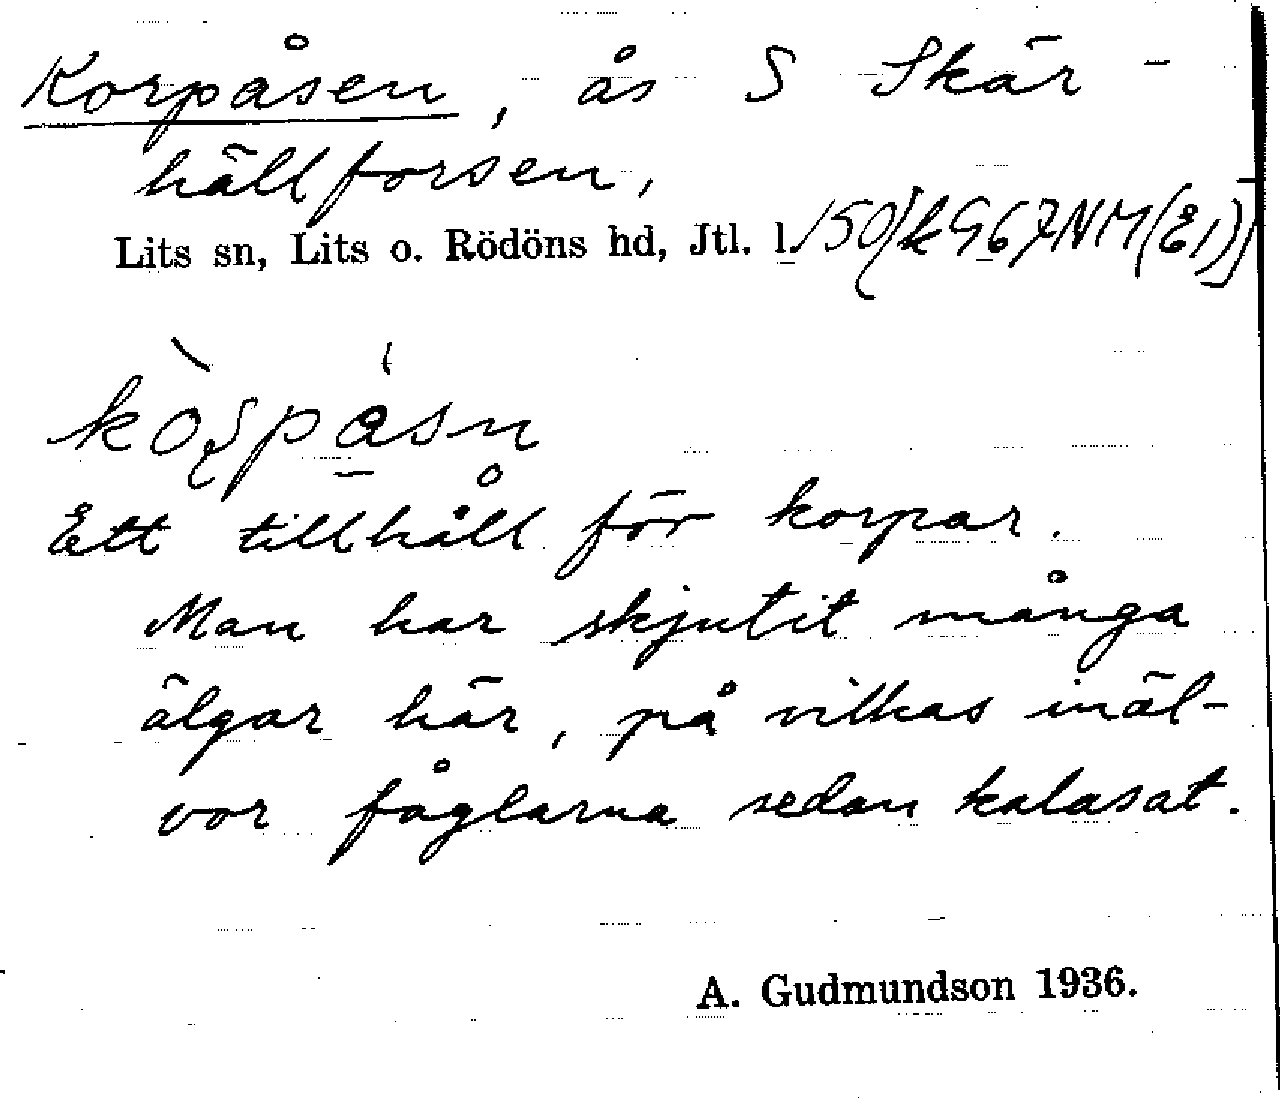 Korpåsen, ås S Skär-
hällforsen,
Lits sn, Lits o. Rödöns hd, Jtl. l.
Ett tillhåll för korpar.
Man har skjutit många
älgar här, på vilkas inäl-
vor fåglarna sedan kalasat.
A. Gudmundson 1936.